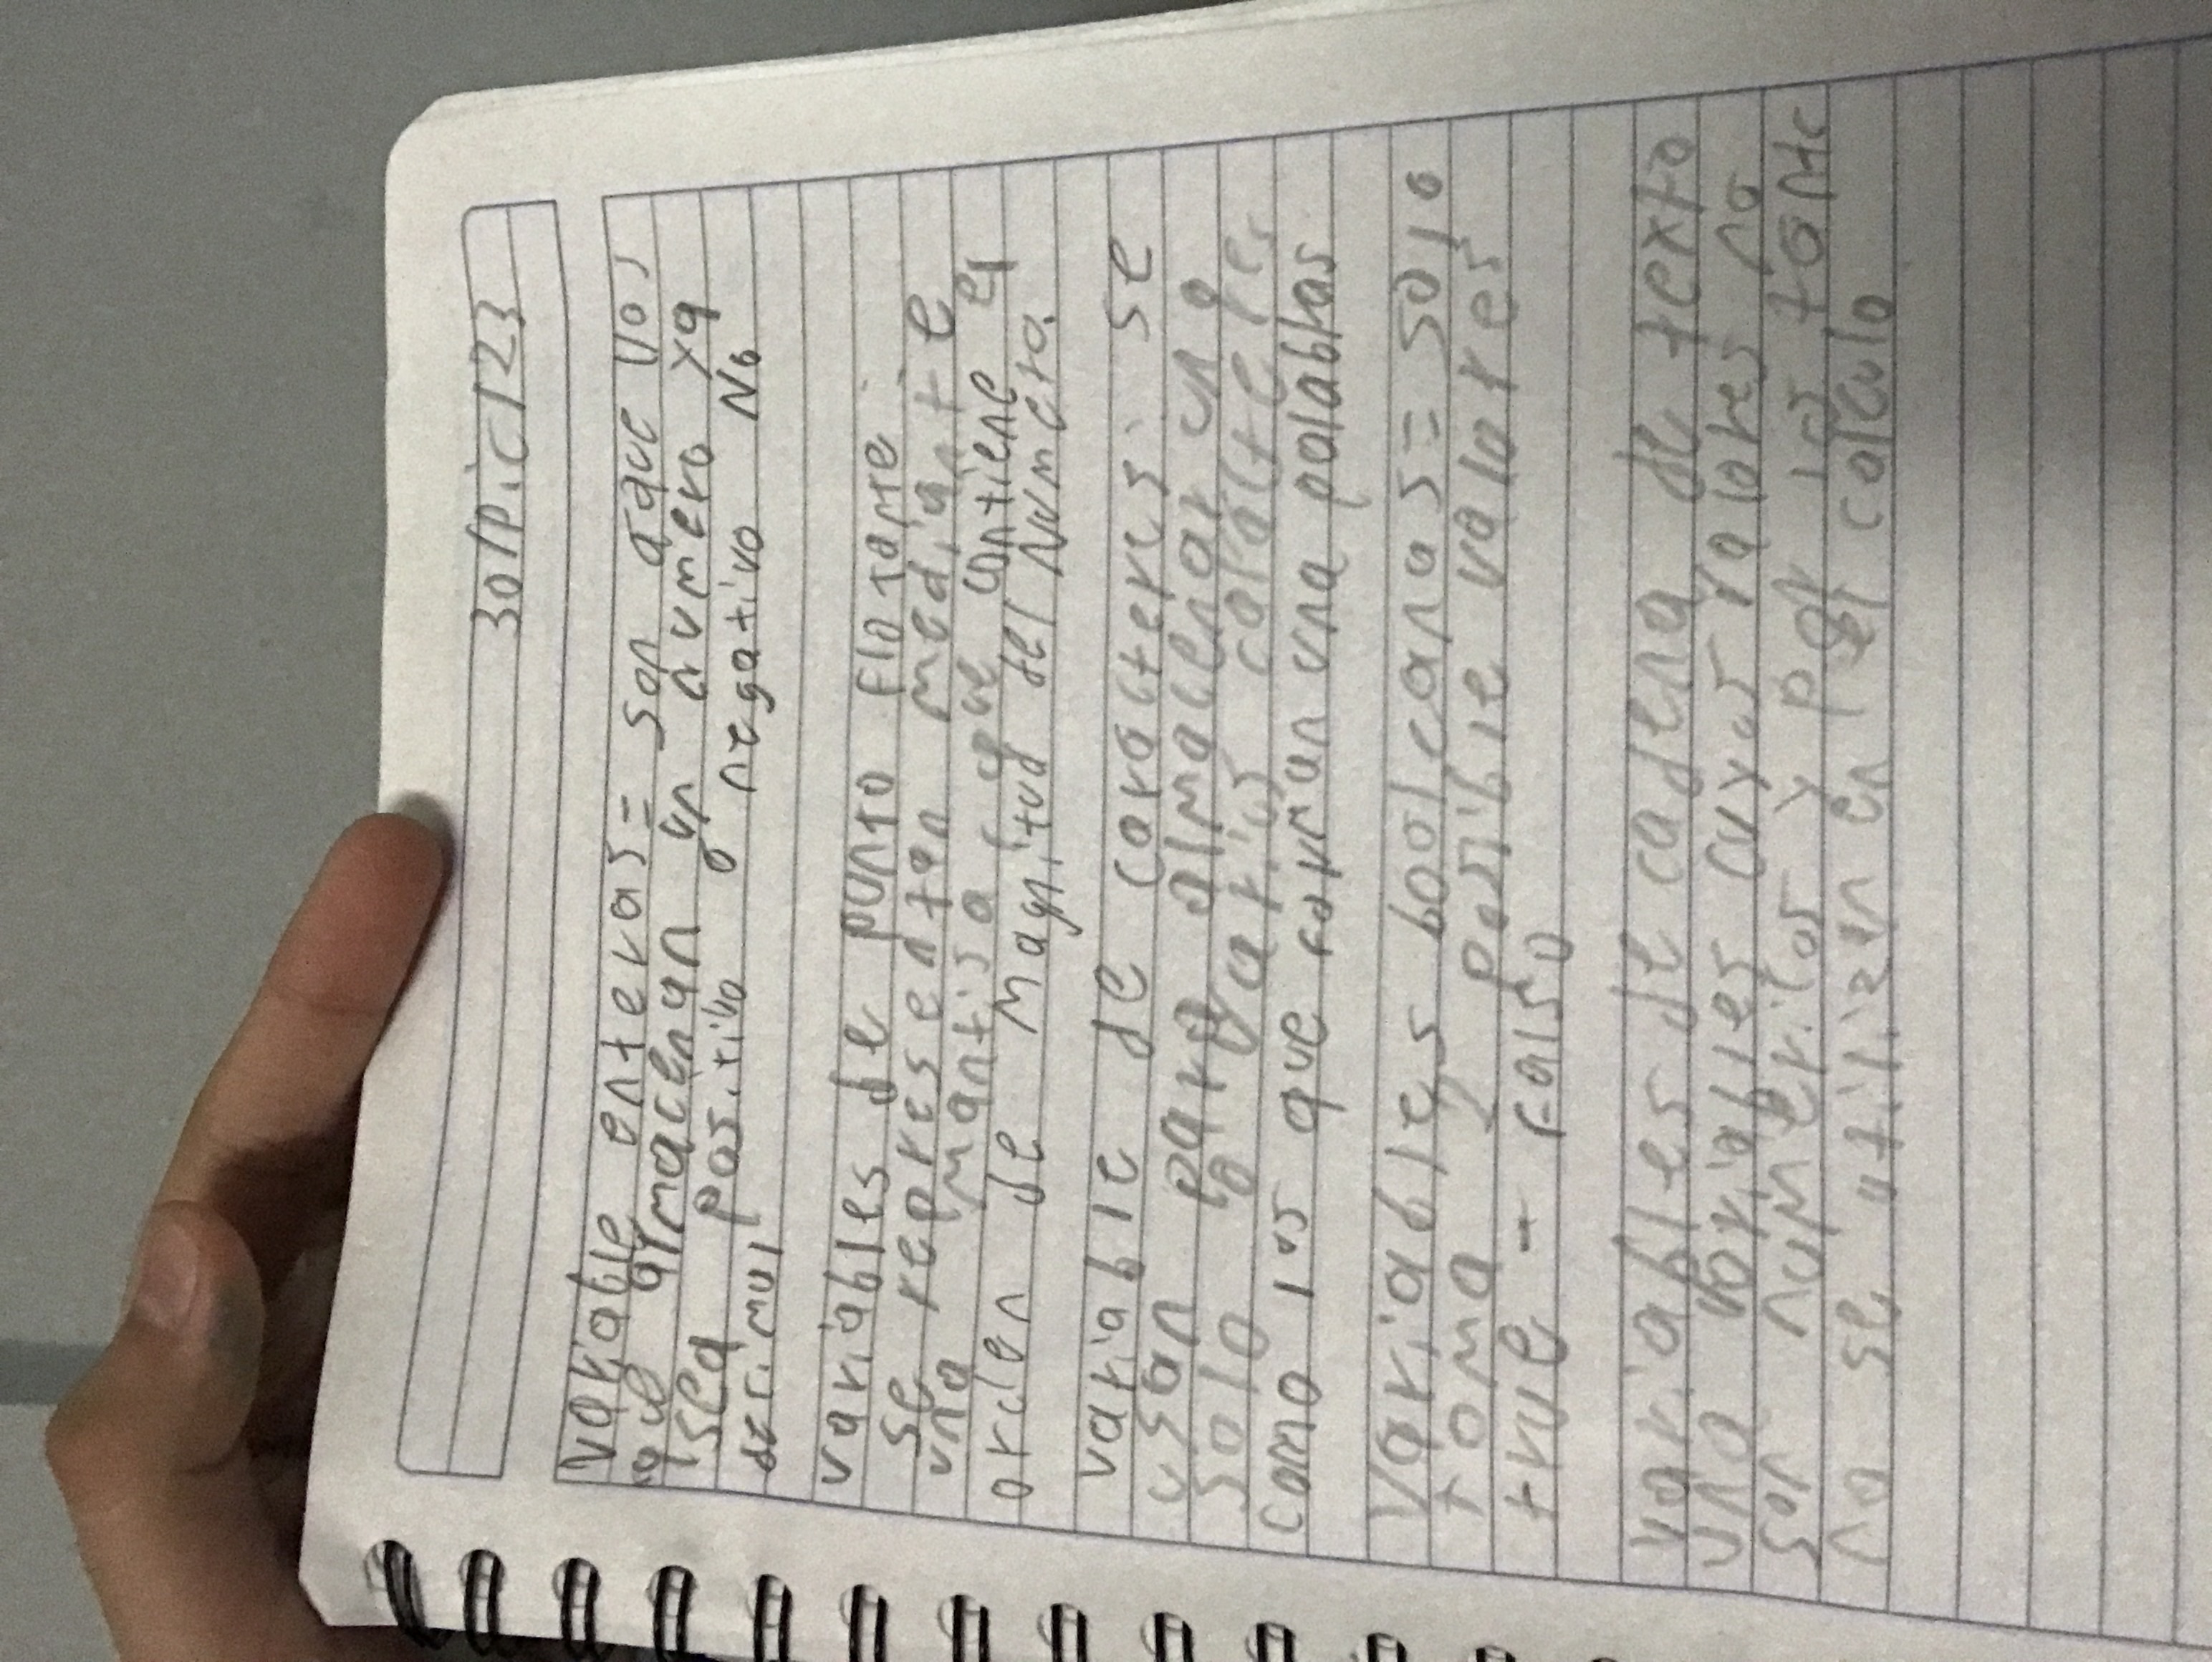 30/Dic/23
Variable enteras= son aque vos
que almacenan un numero ya
sea positivo o negativo No
decimal
variables de punto flotante
se representan mediante
una mantisa que contiene el
orden de Magnitud del Numero.
variable de caracteres: se
usan para almacenar un
solo caracter
como los que forman una palabras
Variables booleanas = solo
toma 2 posible valores
true - falso
variables de cadena de texto
una variables cuyos valores no
son numericos y por lo tanto
no se utilizan en el calculo